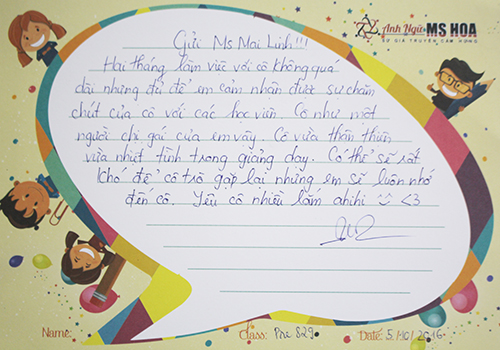 Anh Ngữ MS HOA
SỨ GIẢ TRUYỀN CẢM HỨNG
Gửi Ms Mai Linh!!!
Hai tháng làm việc với cô không quá
dài nhưng đủ để em cảm nhận được sự chăm
chút của cô với các học viên. Cô như một
người chị gái của em vậy. Cô vừa thân thiện
vừa nhiệt tình trong giảng dạy. Có thể sẽ rất
khó để cô trò gặp lại nhưng em sẽ luôn nhớ
đến cô. Yêu cô nhiều lắm ahihi <3
Name:
Class: Pre S29
Date: 5/10/2016